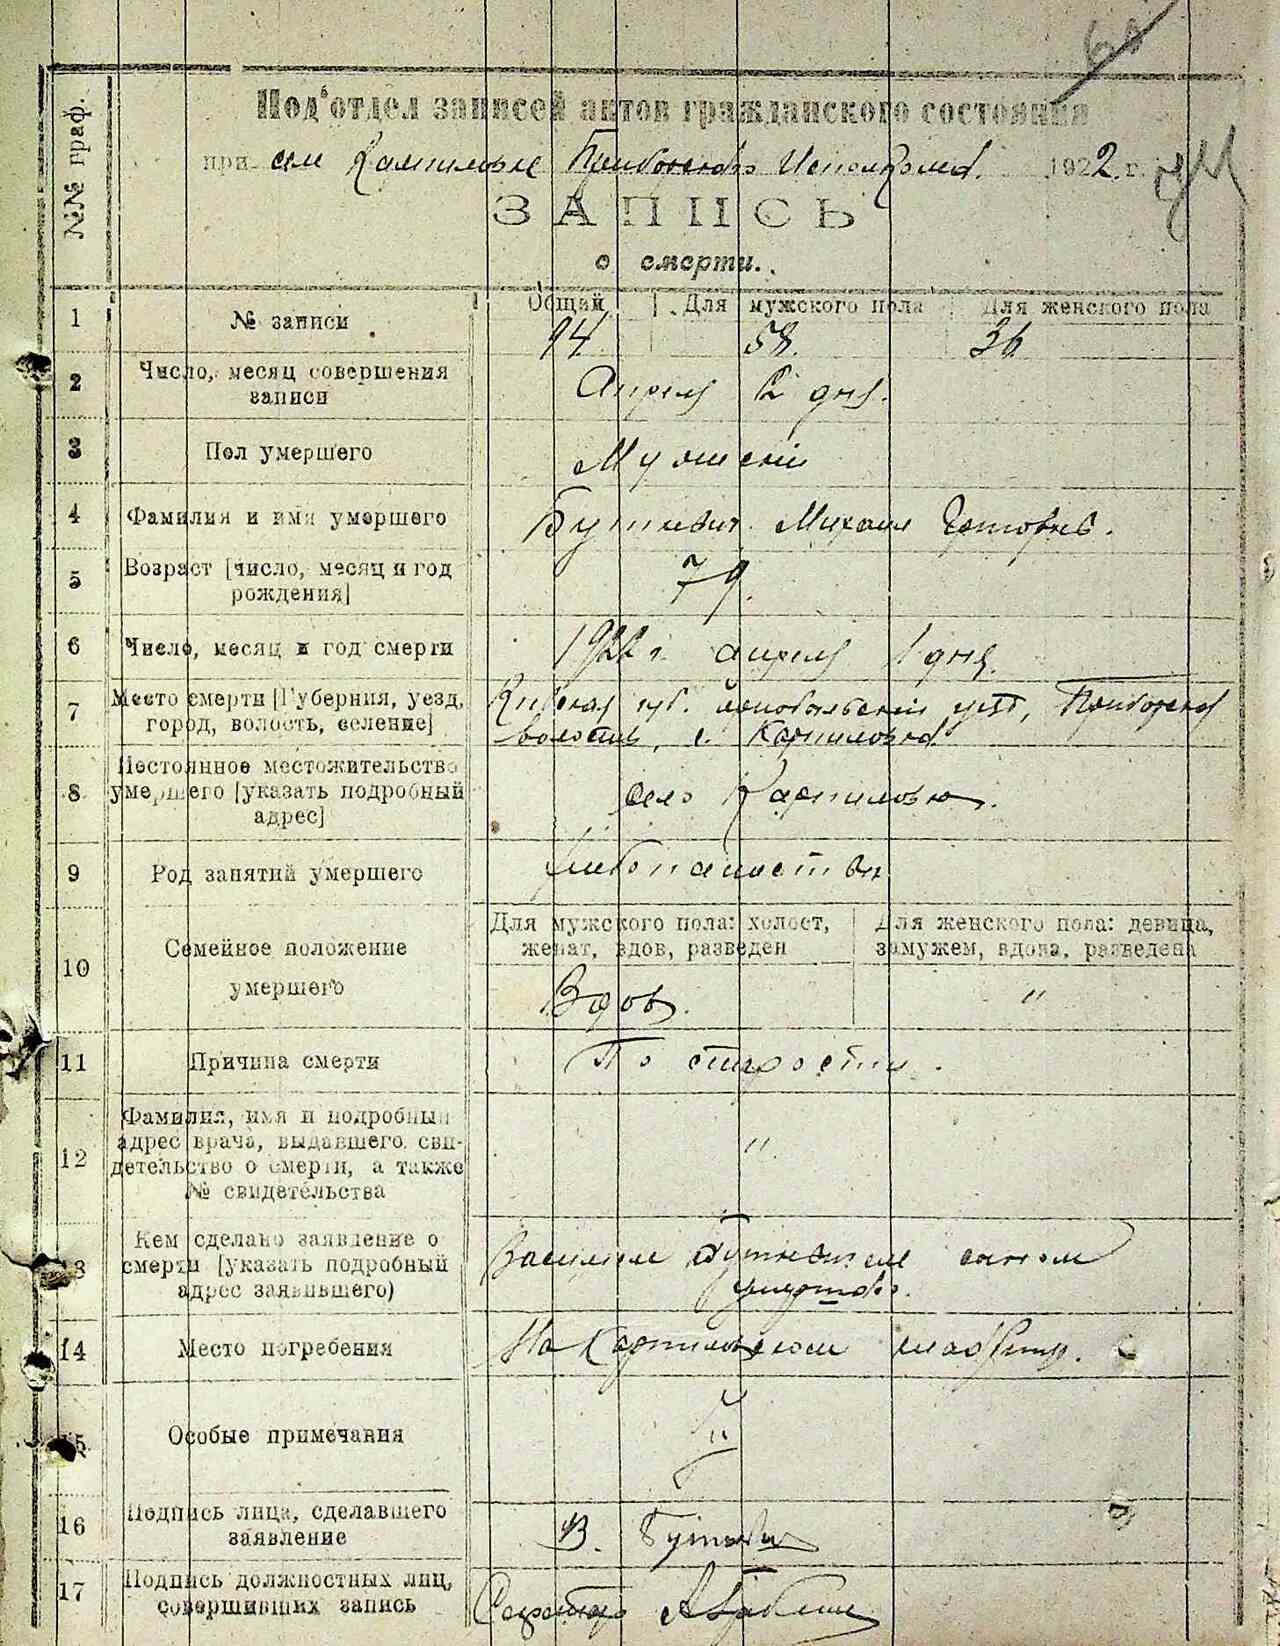 Под'отдел записей актов гражданского состояния
при Исполкома. 1922. г.
ЗАПИСЬ
о смерти.
№№ граф.
Общий Для мужского пола Для женского пола
1 № записи 94 58. 36
2 Число, месяц совершения
записи Апреля 2 дня.
3 Пол умершего Мужский
4 Фамилия и имя умершего Буткевич Михаил
5 Возраст [число, месяц и год
рождения] 79.
6 Число, месяц и год смерти 1922 г. апреля 1 дня.
7 Место смерти [Губерния, уезд,
город, волость, селение] Киевская губ. Чернобыльский Приборская
волость, с. Карпиловка
8 Постоянное местожительство
умершего [указать подробный
адрес] село Карпиловка.
9 Род занятий умершего
Для мужского пола: холост,
женат, вдов, разведен
Для женского пола: девица,
замужем, вдова, разведена
10 Семейное положение
умершего Вдов. "
11 Причина смерти По старости.
12 Фамилия, имя и подробный
адрес врача, выдавшего сви-
детельство о смерти, а также
№ свидетельства "
13 Кем сделано заявление о
смерти [указать подробный
адрес заявившего) Василием Буткевичем сыном
умершого.
14 Место погребения На Карпиловском кладбище.
15 Особые примечания "
16 Подпись лица, сделавшего
заявление В.
17 Подпись должностных лиц,
совершивших запись Секретарь